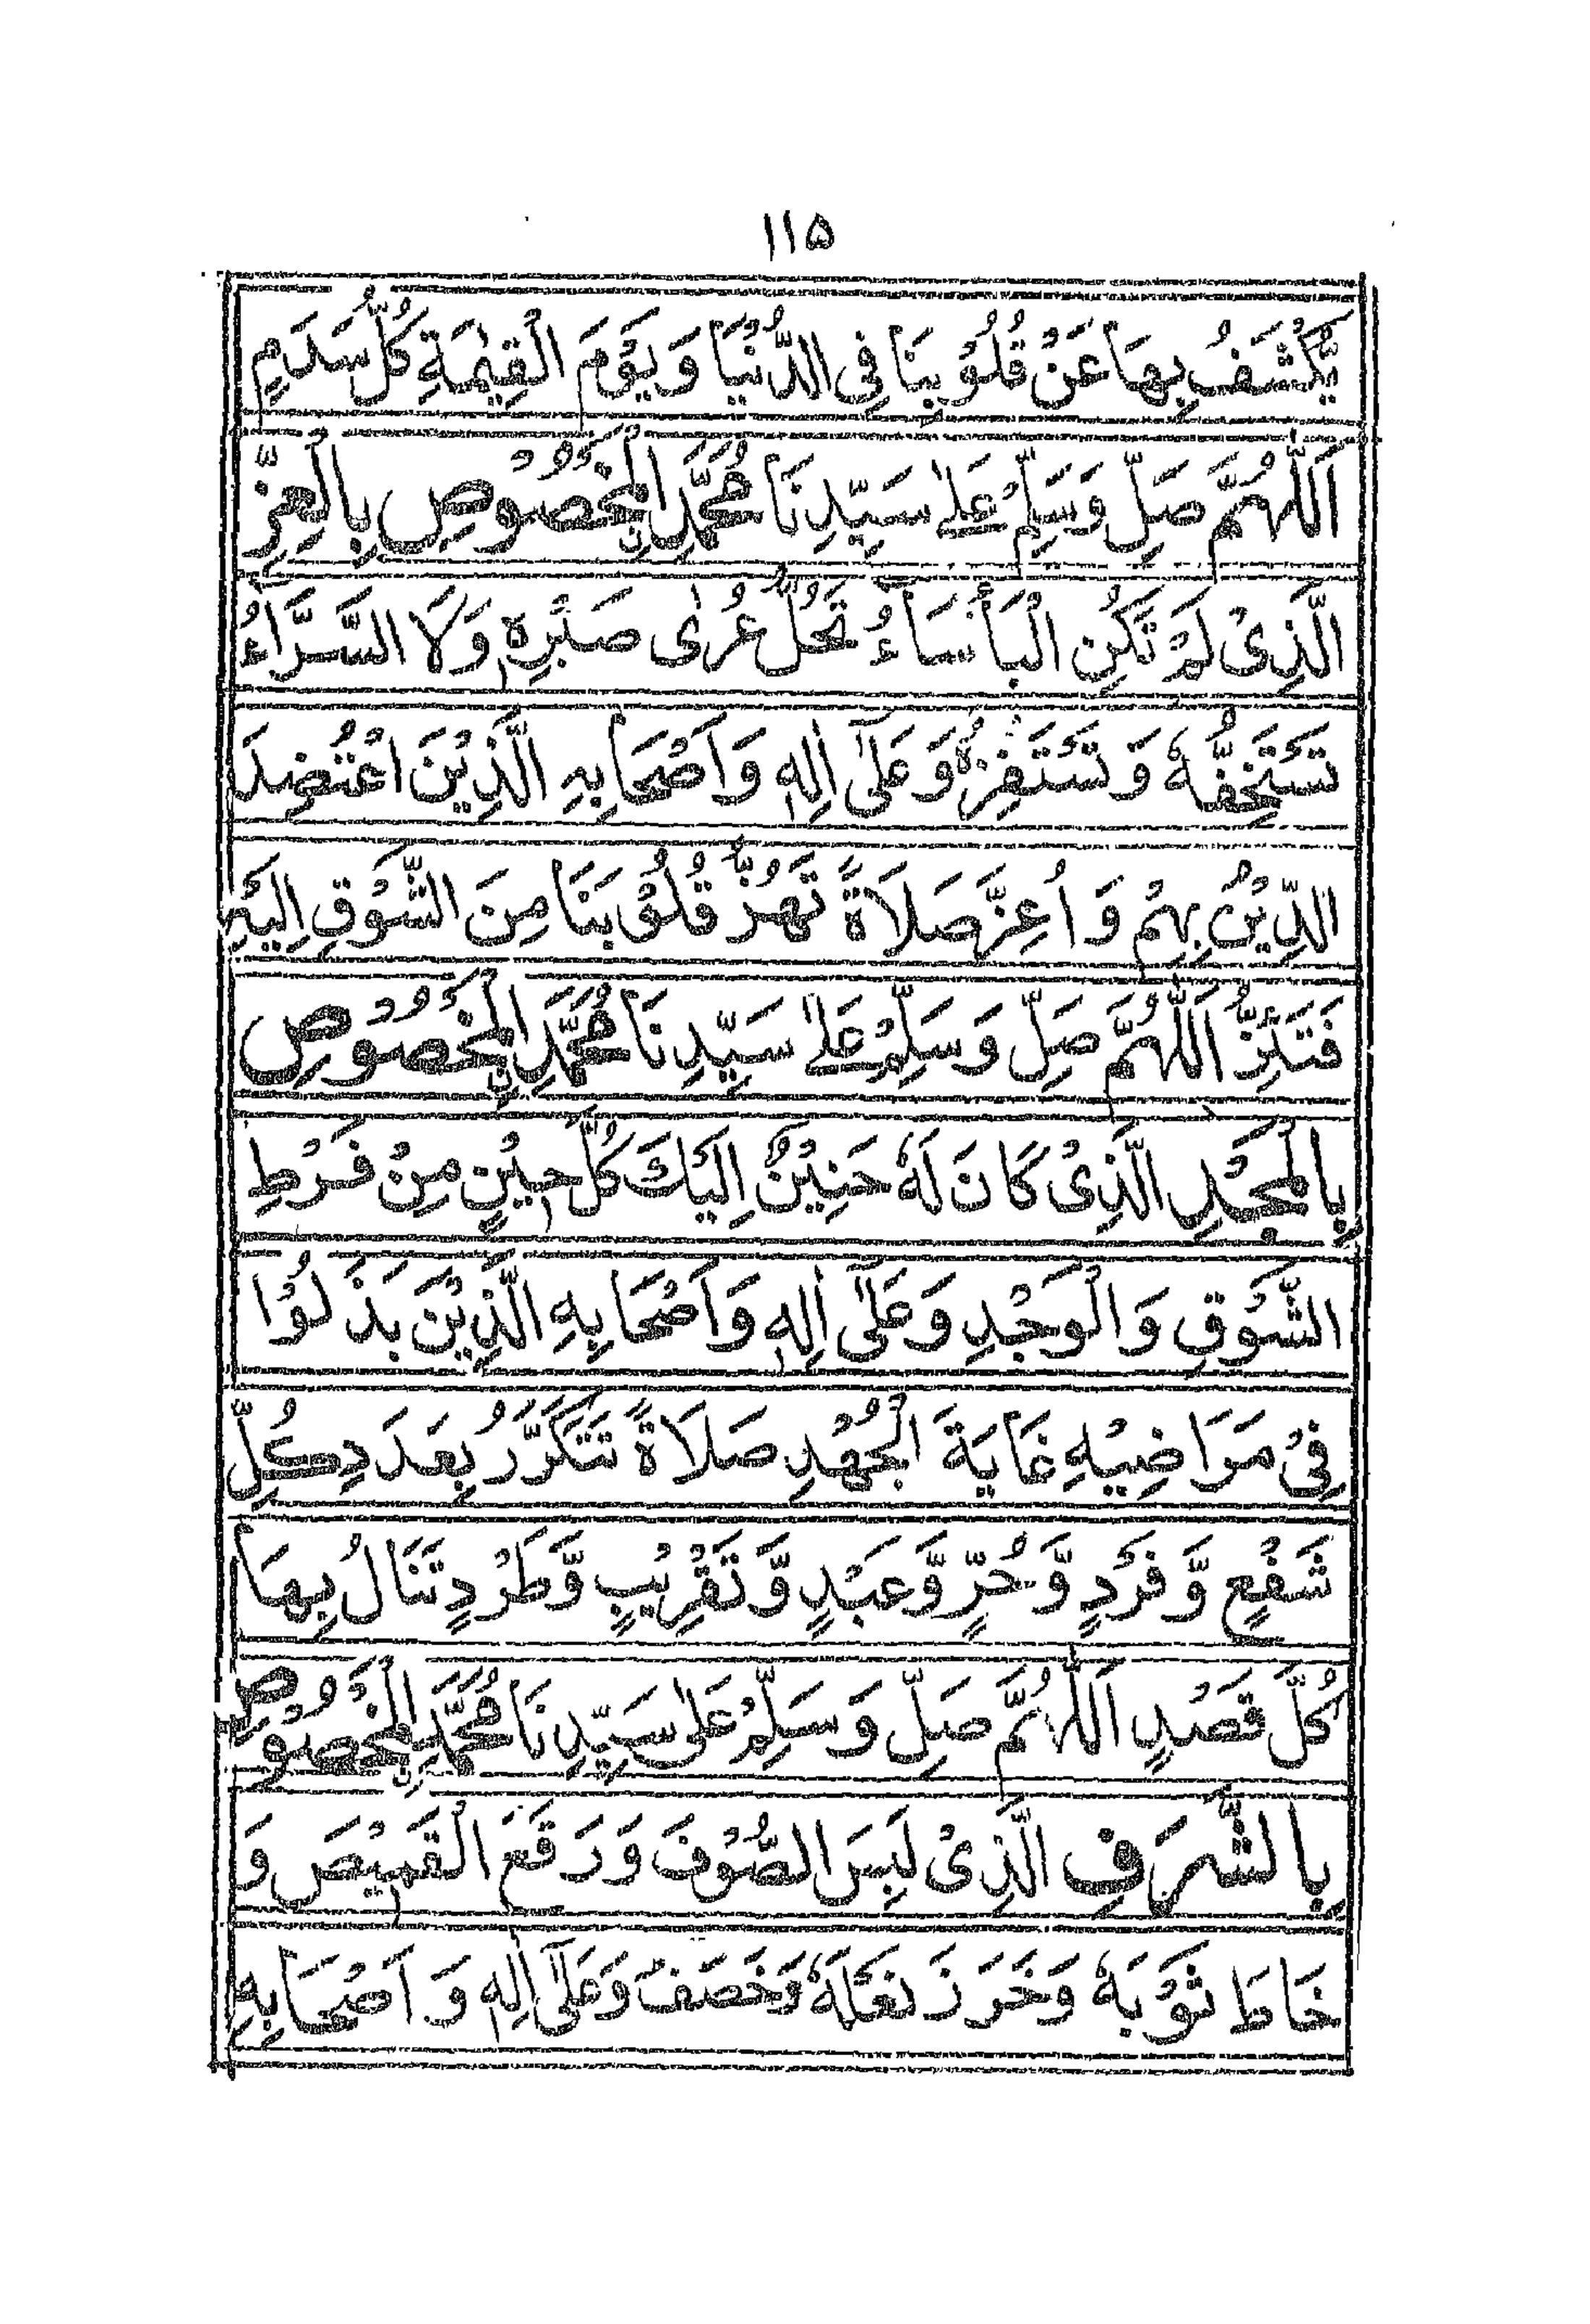 ۱۱۵
يُّكْشَفُ بِهَا عَنْ قُلُوْبِنَا فِى الدُّنْيَا وَ يَوْمَ الْقِيٰمَةِ كُلُّ سَدَيمٍ
اَللّٰهُمَّ صَلِّ وَسَلِّمْ عَلٰے سَيِّدِنَا مُحَمَّدِ نِ الْمَخْصُوْصِ بِالْعِزِّ
الَّذِىْ لَمْ تَكُنِ الْبَأْسَآءُ تَحُلُّ عُرٰى صَبْرِهٖ وَلَا السَّرَّاءُ
تَسْتَخِفُّهٗ وَ تَسْتَفِزُّهٗ وَ عَلٰٓى اٰلِهٖ وَ اَصْحَابِهِ الَّذِيْنَ اعْتُضِدَ
الدِّيْنُ بِهِمْ وَ اُعِزَّ صَلَاةً تَهُزُّ قُلُوْبَنَا مِنَ الشَّوْقِ اِلَيْهِ
فَتَئِزُّ اَللّٰهُمَّ صَلِّ وَ سَلِّمْ عَلٰے سَيِّدِنَا مُحَمَّدِ نِ الْمَخْصُوْصِ
بِالْمَجْدِ الَّذِىْ كَانَ لَهٗ حَنِيْنٌ اِلَيْكَ كُلَّ حِيْنٍ مِنْ فَرْطِ
الشَّوْقِ وَ الْوَجْدِ وَ عَلٰٓى اٰلِهٖ وَ اَصْحَابِهِ الَّذِيْنَ بَذَلُوْا
فِىْ مَرَاضِيْهِ غَايَةَ الْجُهْدِ صَلَاةً تَتَكَرَّرُ بِعَدَدِ كُلِّ
شَفْعٍ وَّ فَرْدٍ وَّ حُرٍّ وَّ عَبْدٍ وَّ تَقْرِيْبٍ وَّ طَرْدٍ تَنَالُ بِهَا
كُلَّ قَصْدٍ اَللّٰهُمَّ صَلِّ وَ سَلِّمْ عَلٰى سَيِّدِنَا مُحَمَّدِ نِ الْمَخْصُوْصِ
بِالشَّرَفِ الَّذِىْ لَبِسَ الصُّوْفَ وَ رَقَعَ الْقَمِيْصَ وَ
خَاطَ ثَوْبَهٗ وَ خَرَزَ نَعْلَهٗ وَخَصَفَ وَ عَلٰٓى اٰلِهٖ وَ اَصْحَابِهِ